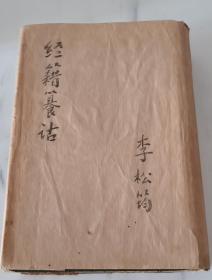 经籍籑诂
李松筠